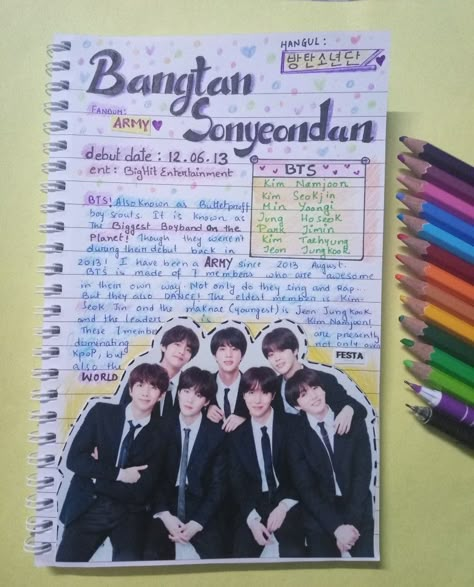 HANGUL:
방탄소년단
Bangtan
Sonyeondan
FANDOM:
ARMY
debut date : 12.06.13
ent : BigHit Entertainment
BTS
Kim Namjoon
Kim Seokjin
Min Yoongi
Jung Hoseok
Park Jimin
Kim Taehyung
Jeon Jungkook
BTS! Also known as Bulletproof
boy scouts. It is known as
The Biggest Boyband on the
Planet! Though they weren't
during their debut back in
2013! I have been a ARMY since 2013 August.
BTS is made of 7 members who are awesome
in their own way. Not only do they sing and Rap...
But they also DANCE! The eldest member is Kim
Seok Jin and the maknae (youngest) is Jeon Jungkook
and the leader is Kim Namjoon!
These 7 member are presently
dominating not only
Kpop, but
also the
WORLD
FESTA